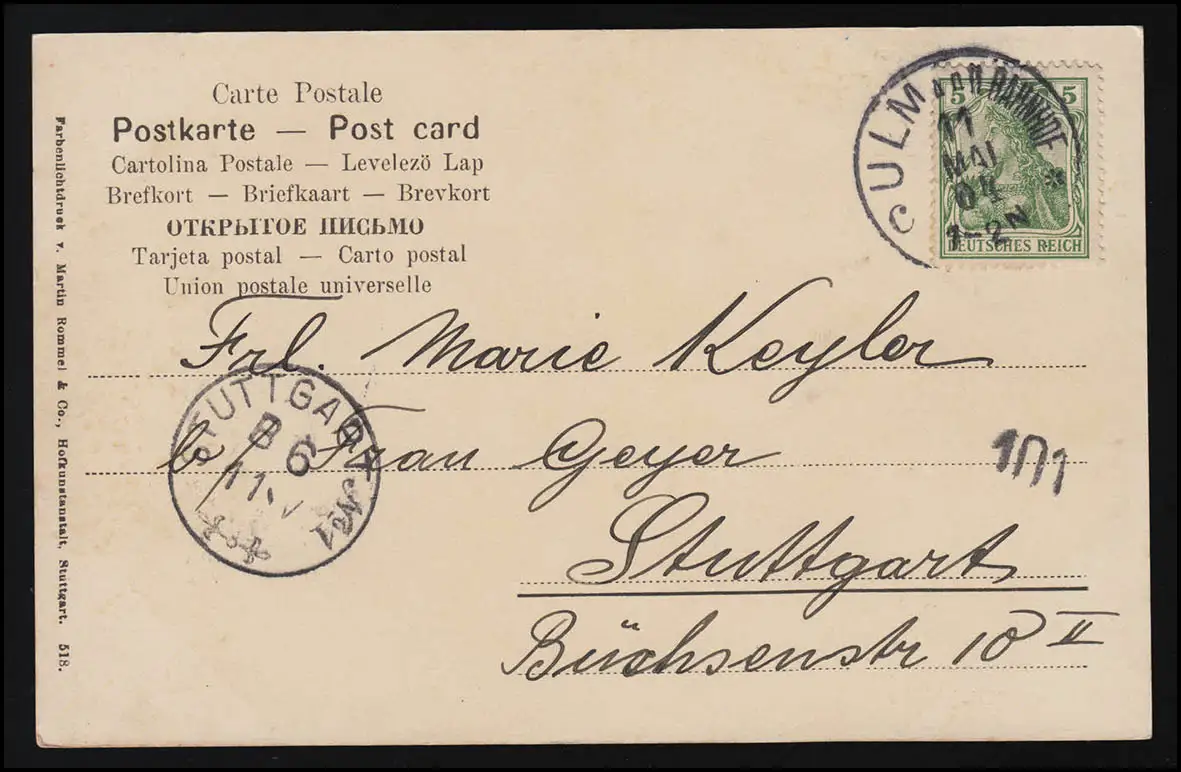 Carte Postale
Postkarte — Post card
Cartolina Postale — Levelezö Lap
Brefkort — Briefkaart — Brevkort
ОТКРЫТОЕ ПИСЬМО
Tarjeta postal — Carto postal
Union postale universelle
Farbenlichtdruck v. Martin Rommel & Co., Hofkunstanstalt, Stuttgart. 518.
5 5
DEUTSCHES REICH
CULM BAHNHOF
11
MAI
04
1-2N
Frl. Marie Keyler
b/ Frau Geyer
Stuttgart
Büchsenstr 10 II
STUTTGART No 1
B 6
11. V